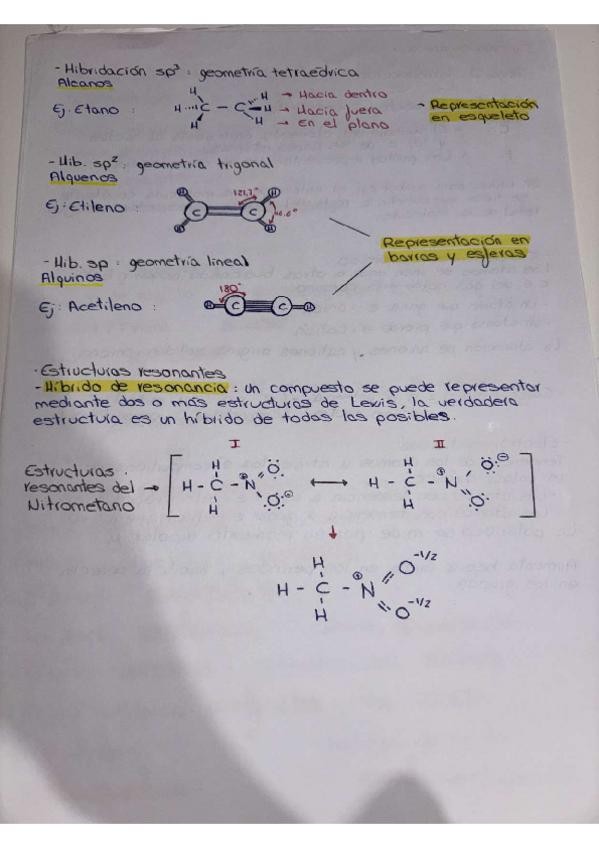 - Hibridación sp³ : geometría tetraédrica
Alcanos
Ej: Etano :
H H
H C - C H
H H
→ Hacia dentro
→ Hacia fuera
→ En el plano
→ Representación
en esqueleto
- Hib. sp² : geometría trigonal
Alquenos
Ej: Etileno :
H H
121,7°
C C
H H
Representación en
barras y esferas
- Hib. sp : geometría lineal
Alquinos
Ej: Acetileno :
180°
H C C H
· Estructuras resonantes
- Híbrido de resonancia : Un compuesto se puede representar
mediante dos o más estructuras de Lewis, la verdadera
estructura es un híbrido de todas las posibles.
I II
Estructuras
resonantes del →
Nitrometano
H O
H - C - N
H O
↔
H O
H - C - N
H O
↓
H O -1/2
H - C - N
H O -1/2